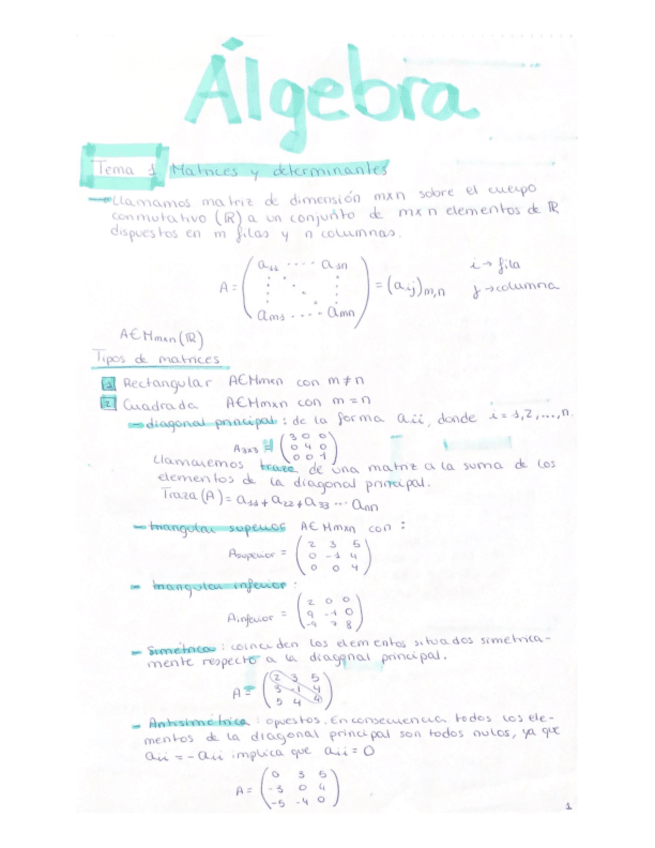 Álgebra
Tema 1 Matrices y determinantes
Llamamos matriz de dimensión mxn sobre el cuerpo
conmutativo (ℝ) a un conjunto de mxn elementos de ℝ
dispuestos en m filas y n columnas.
a₁₁ ···· a₁n i → fila
A = = (aij)m,n j → columna
am1 ···· amn
A∈Mmxn(ℝ)
Tipos de matrices
1 Rectangular A∈Mmxn con m ≠ n
2 Cuadrada A∈Mmxn con m = n
diagonal principal : de la forma aii, donde i = 1,2,...,n.
3 0 0
A3x3 = 0 4 0
0 0 1
Llamaremos traza de una matriz a la suma de los
elementos de la diagonal principal.
Traza (A) = a₁₁ + a₂₂ + a₃₃ ··· ann
triangular superior A∈Mmxn con :
2 3 5
Asuperior = 0 -1 4
0 0 4
triangular inferior :
2 0 0
Ainferior = 9 -1 0
-4 7 8
Simétrica : coinciden los elementos situados simétrica-
mente respecto a la diagonal principal.
2 3 5
A = 3 -1 4
5 4 4
Antisimétrica : opuestos. En consecuencia todos los ele-
mentos de la diagonal principal son todos nulos, ya que
aii = -aii implica que aii = 0
0 3 5
A = -3 0 4
-5 -4 0
1